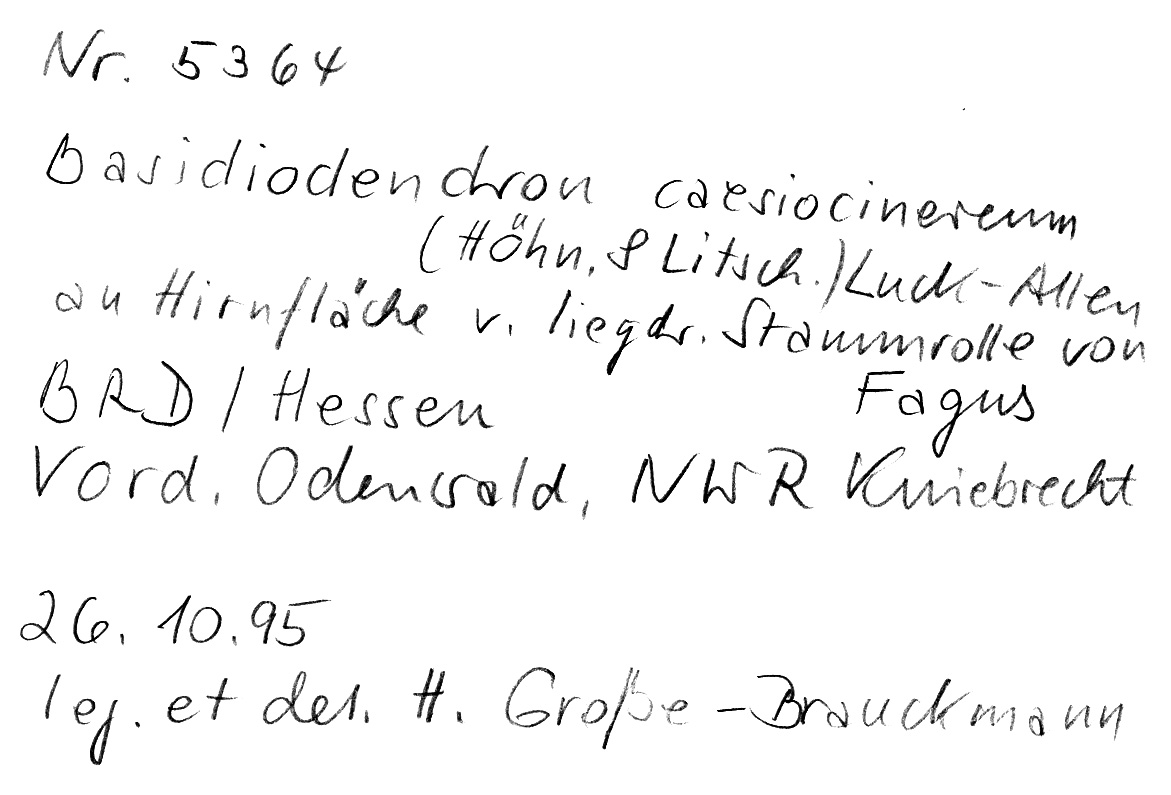 Nr. 5364
Basidiodendron caesiocinereum
(Höhn. & Litsch.) Luck-Allen
an Hirnfläche v. liegdr. Stammrolle von
Fagus
BRD / Hessen
Vord. Odenwald, NWR Kniebrecht
26.10.95
leg. et det. H. Große-Brauckmann